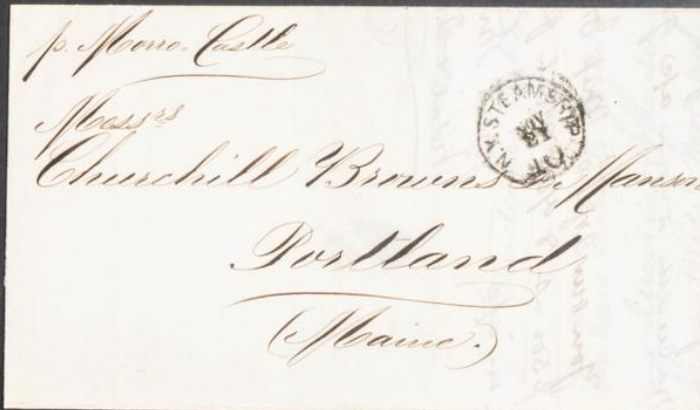 p. Morro-Castle
Mess^rs
Churchill Browns & Manson
Portland
(Maine.)
N.Y. STEAMSHIP
NOV
10